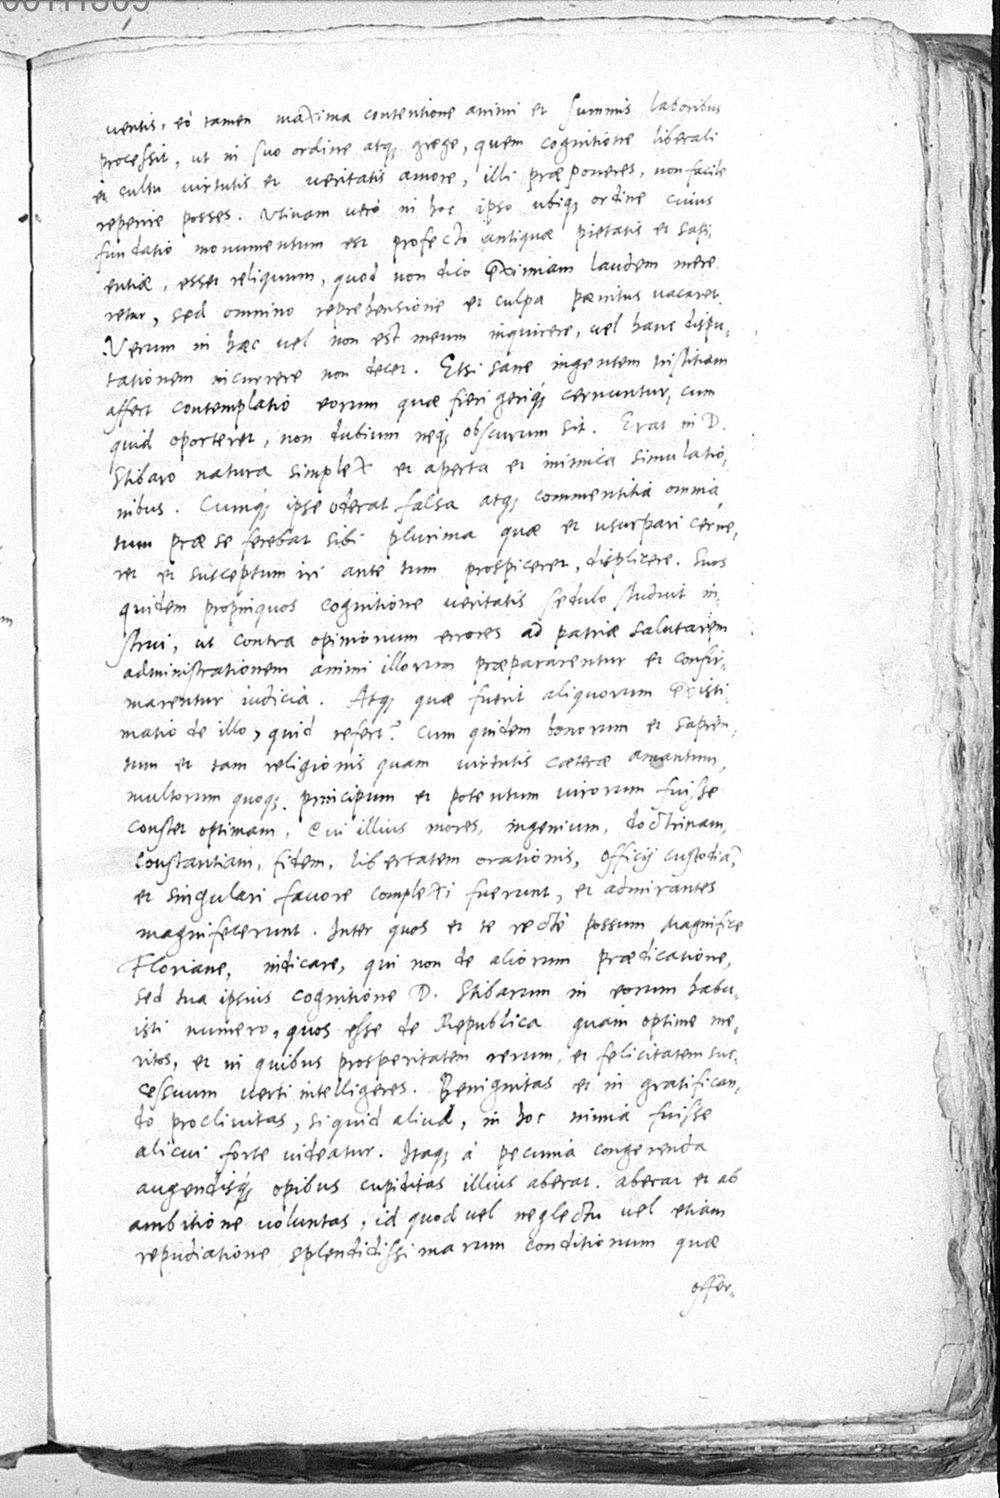 uentis, eò tamen maxima contentione animi et summis laboribus
processit, ut in suo ordine atq; grege, quem cognitione liberali
et cultu virtutis et veritatis amore, illi præponeres, non facile
reperire posses. Vtinam verò in hoc ipso ubiq; ordine cuius
fundatio monumentum est profecto antiquæ pietatis et sapi,
entiæ, esset reliquum, quod non dico eximiam laudem mere
retur, sed omnino reprehensione et culpa pænitus vacaret.
Verum in hæc vel non est meum inquirere, vel hanc dispu,
tationem incurrere non decet. Etsi sane ingentem tristitiam
affert contemplatio eorum quæ fieri geriq́; cernuntur, cum
quid oporteret, non dubium neq; obscurum sit. Erat in D.
Stibaro natura simplex et aperta et inimica simulatio,
nibus. Cumq́; ipse oderat falsa atq; commentitia omnia,
tum præ se ferebat sibi plurima quæ et usurpari cerne,
ret et susceptum iri ante tum prospiceret, displicere. Suos
quidem propinquos cognitione veritatis sedulo studuit in,
strui, ut contra opinionum errores ad patriæ salutarem
administrationem animi illorum præpararentur et confir,
marentur iudicia. Atq; quæ fuerit aliquorum existi,
matio de illo, quid refert? Cum quidem bonorum et sapien,
tum et tam religionis quam virtutis cæteræ amantum,
multorum quoq; principum et potentum virorum fuisse
constet optimam, Qui illius mores, ingenium, doctrinam,
constantiam, fidem, libertatem orationis, officij custodiã,
et singulari fauore complexi fuerunt, et admirantes
magnifecerunt. Inter quos et te rectè possum Magnifice
Floriane, indicare, qui non de aliorum prædicatione,
sed tua ipsius cognitione D. Stibarum in eorum habu,
isti numero, quos esse de Republica quam optime me,
ritos, et in quibus prosperitatem rerum, et felicitatem suc,
cessuum verti intelligeres. Benignitas et in gratifican,
do procliuitas, si quid aliud, in hoc nimia fuisse
alicui forte uideatur. Itaq; à pecunia congerenda
augendisq́; opibus cupiditas illius aberat. aberat et ab
ambitione uoluntas, id quod vel neglectu vel etiam
repudiatione splendidissimarum conditionum quæ
offer,